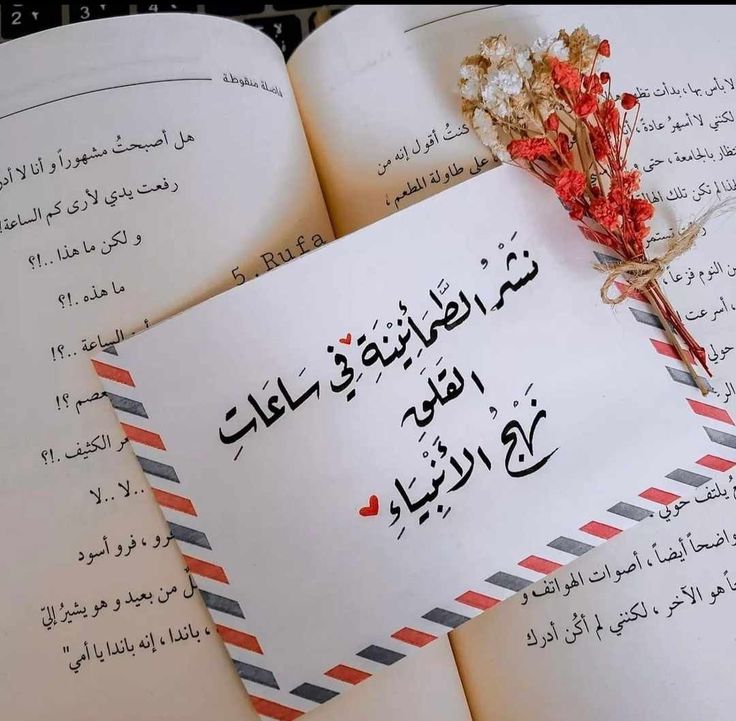 فاصلة منقوطة
هل أصبحتُ مشهوراً و أنا لا
رفعت يدي لأرى كم الساعة!
و لكن ما هذا ..!؟
ما هذه .!؟
الساعة ..!؟
الكثيف .!؟
..لا ..لا
، فرو أسود
من بعيد و هو يشيرُ إليّ
، باندا ، إنه باندا يا أمي"
5.Rufa
نَشْرُ الطَّمَأْنِينَةِ فِي سَاعَاتِ
القَلَقِ
نَهْجُ الأَنْبِيَاءِ
لا بأس بها ، بدأت
لكنني لا أسهرُ عادةً ،
كنتُ أقول إنه من
بالجامعة ، حتى و
على طاولة المطعم ،
تكن تلك
النوم فزعاً ،
حولي
يلتف حولي
واضحاً أيضاً ، أصوات الهواتف و
هو الآخر ، لكنني لم أكُن أدرك